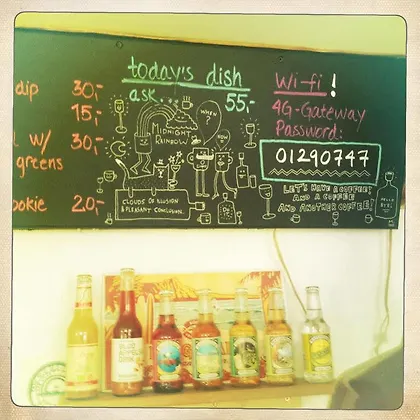 today's dish
ask 55,-
dip 30,-
15,-
w/ 30,-
greens
ookie 20,-
MIDNIGHT
RAINBOW
WHEN?
NOW!
CLOUDS OF ILLUSION
& PLEASANT CONCLUSION.
Wi-fi!
4G-Gateway
Password:
01290747
LET'S HAVE A COFFEE!
AND A COFFEE
AND ANOTHER COFFEE!